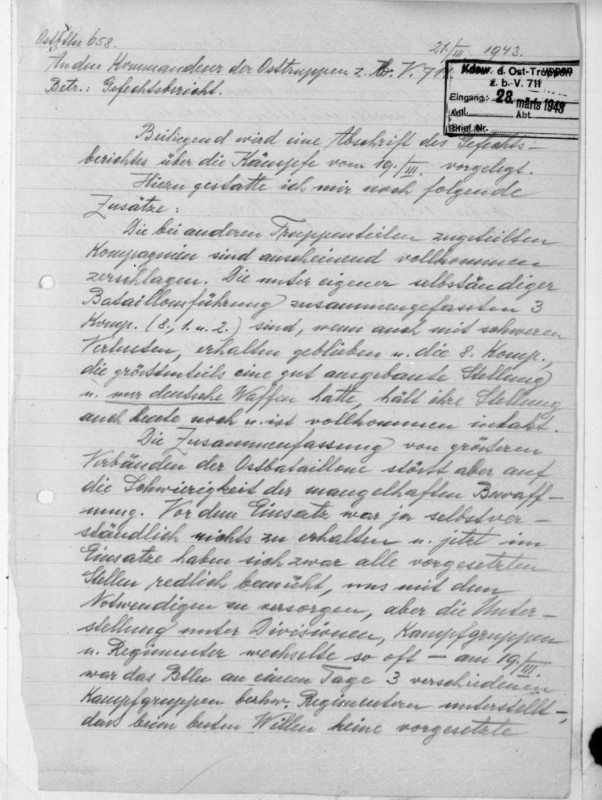 Ostbtln 658.
21./III. 1943.
An den Kommandeur der Osttruppen z. b. V. 711.
Betr.: Gefechtsbericht.
Kdeur. d. Ost-Truppen
z. b. V. 711
Eingang: 28. märts 1943
Abt.
Brief. Nr.
Beiliegend wird eine Abschrift des Gefechts-
berichtes über die Kämpfe vom 19./III. vorgelegt.
Hierzu gestatte ich mir noch folgende
Zusätze:
Die bei anderen Truppenteilen zugeteilten
Kompagnien sind anscheinend vollkommen
zerschlagen. Die unter eigener selbständiger
Bataillonsführung zusammengefassten 3
Komp. (8., 1. u. 2.) sind, wenn auch mit schweren
Verlusten, erhalten geblieben u. die 8. Komp.,
die grösstenteils eine gut ausgebaute Stellung
u. nur deutsche Waffen hatte, hält ihre Stellung
auch heute noch u. ist vollkommen intakt.
Die Zusammenfassung von grösseren
Verbänden der Ostbataillone stösst aber auf
die Schwierigkeit der mangelhaften Bewaff-
nung. Vor dem Einsatz war ja selbstver-
ständlich nichts zu erhalten u. jetzt im
Einsatze haben sich zwar alle vorgesetzten
Stellen redlich bemüht, uns mit dem
Notwendigen zu versorgen, aber die Unter-
stellung unter Divisionen, Kampfgruppen
u. Regimenter wechselte so oft – am 19./III.
war das Btln an einem Tage 3 verschiedenen
Kampfgruppen bezhw. Regimentern unterstellt –,
dass beim besten Willen keine vorgesetzte